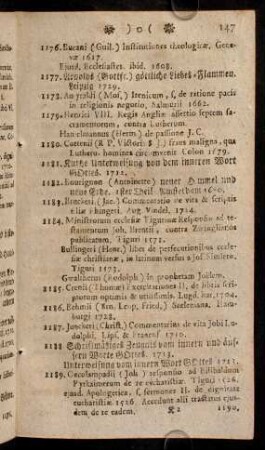 147
1176. Bucani (Guil.) Institutiones theologicæ, Genevæ 1617.
Ejusd. Ecclesiastes. ibid. 1608.
1177. Arnolds (Gottfr.) göttliche Liebes-Flammen.
Leipzig 1729.
1178. Amyraldi (Mos.) Irenicum, s. de ratione pacis
in religionis negotio, Salmurii 1662.
1179. Henrici VIII. Regis Angliæ assertio septem sacramentorum, contra Lutherum.
Hamelmannus (Herm.) de passione J. C.
1180. Costeri (R. P. Victori S J.) fraus maligna, qua
Lutheru homines circumvenit Colon 1679.
1181. Kurtze Unterweisung von dem innern Wort
GOttes. 1712.
1182. Bourignon (Antoinette) neuer Himmel und
neue Erde. 1ster Theil Amsterdam
1183. Brocheri (Jac.) Commentatio de vita & scriptis
Aug Vindel. 1714.
1184. Ministrorum ecclesiæ Tigurinæ Responsio ad testamentum Joh. Brentii, contra Zvinglianos
publicatum. Tiguri 1571.
Bullingeri (Henr.) liber de perfectionibus ecclesiæ christianæ, in lucem versus a Jos. Simlero.
Tiguri 1573.
Gvaltherus (Rudolph) in prophetam Joëlem.
1185. Crenii (Thomæ) exercitationes II. de libris scriptorum optimis & utilissimis. Lugd. Bat. 1704.
1186. Rehmii (Ben. Leop. Frid.) Seeleriana. Hamburgi 1728.
1187. Junckeri (Christ.) Commentarius de vita Jobi Ludolphi. Lips. & Francof 1710.
1188 Schriftmäßiges Zeugniß vom innern und äussern Worte GOttes. 1713.
Unterweisung vom innern Wort GOttes 1712.
1189. Oecolampadii (Joh) responsio ad Bilibaldum
Pyrkaimerum de re eucharistiæ. Tiguri 1526,
ejusd. Apologetica, s. sermones II. de dignitate
eucharistiæ 1526. Accedunt alii tractatus ejusdem de re eadem.
K 2
1190.